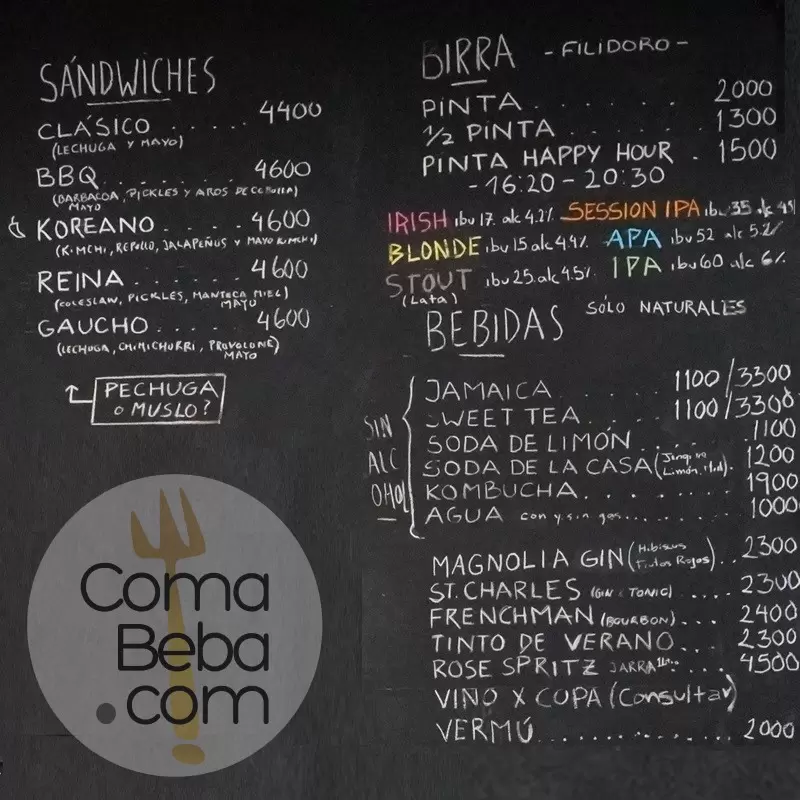 SÁNDWICHES
CLÁSICO . . . . . . 4400
(LECHUGA Y MAYO)
BBQ . . . . . . . . 4600
(BARBACOA, PICKLES Y AROS DE CEBOLLA)
MAYO
KOREANO . . . . . 4600
(KIMCHI, REPOLLO, JALAPEÑOS Y MAYO KIMCHI)
REINA . . . . . . . 4600
(COLESLAW, PICKLES, MANTECA MIEL)
MAYO
GAUCHO . . . . . 4600
(LECHUGA, CHIMICHURRI, PROVOLONE)
MAYO
PECHUGA
O MUSLO?
BIRRA - FILIDORO -
PINTA . . . . . . . 2000
1/2 PINTA . . . . . . 1300
PINTA HAPPY HOUR . 1500
- 16:20 - 20:30
IRISH ibu 17. alc 4.2% SESSION IPA ibu 35 alc
BLONDE ibu 15 alc 4.4% APA ibu 52 alc 5.2%
STOUT ibu 25 alc 4.5% IPA ibu 60 alc 6%
(Lata)
BEBIDAS SÓLO NATURALES
SIN
ALC
OHOL
JAMAICA . . . . . . 1100/3300
SWEET TEA . . . . . 1100/3300
SODA DE LIMÓN . . . . . . 1100
SODA DE LA CASA (Limón) . 1200
KOMBUCHA . . . . . . . . 1900
AGUA con y sin gas . . . . . . . 1000
MAGNOLIA GIN (Hibiscus Frutos Rojos) . . 2300
ST. CHARLES (GIN & TONIC) . . . . 2300
FRENCHMAN (BOURBON) . . . 2400
TINTO DE VERANO . . . 2300
ROSE SPRITZ JARRA . . . . 4500
VINO X COPA (Consultar)
VERMÚ . . . . . . . . . . . . . 2000
Coma
Beba
.com